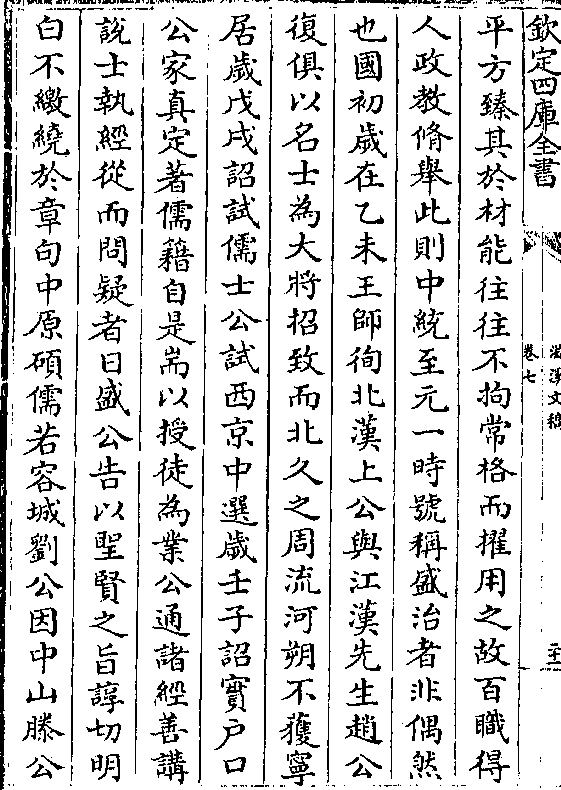 欽定四庫全書
滋溪文稿
卷七
平方臻其於材能往往不拘常格而擢用之故百職得
人政教脩舉此則中統至元一時號稱盛治者非偶然
也國初歲在乙未王師徇北漢上公與江漢先生趙公
復俱以名士為大將招致而北久之周流河朔不獲寧
居歲戊戌詔試儒士公試西京中選歲壬子詔實户口
公家真定著儒籍自是耑以授徒為業公通諸經善講
說士執經從而問疑者日盛公告以聖賢之旨諄切明
白不繳繞於章句中原碩儒若容城劉公因中山滕公